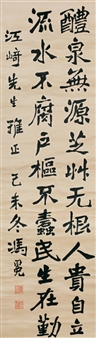 醴泉無源芝艸無根人貴自立
流水不腐户樞不蠹民生在勤
江﨑先生雅正 己未冬馮冕